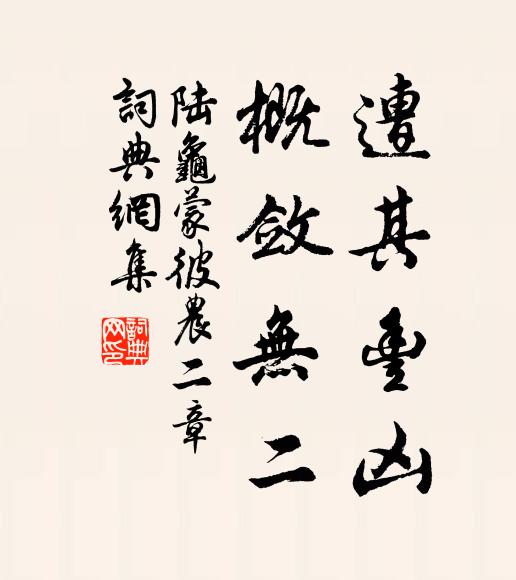 遭其豐凶
概斂無二
陆龜蒙彼農二章
詞典網集
詞典网印